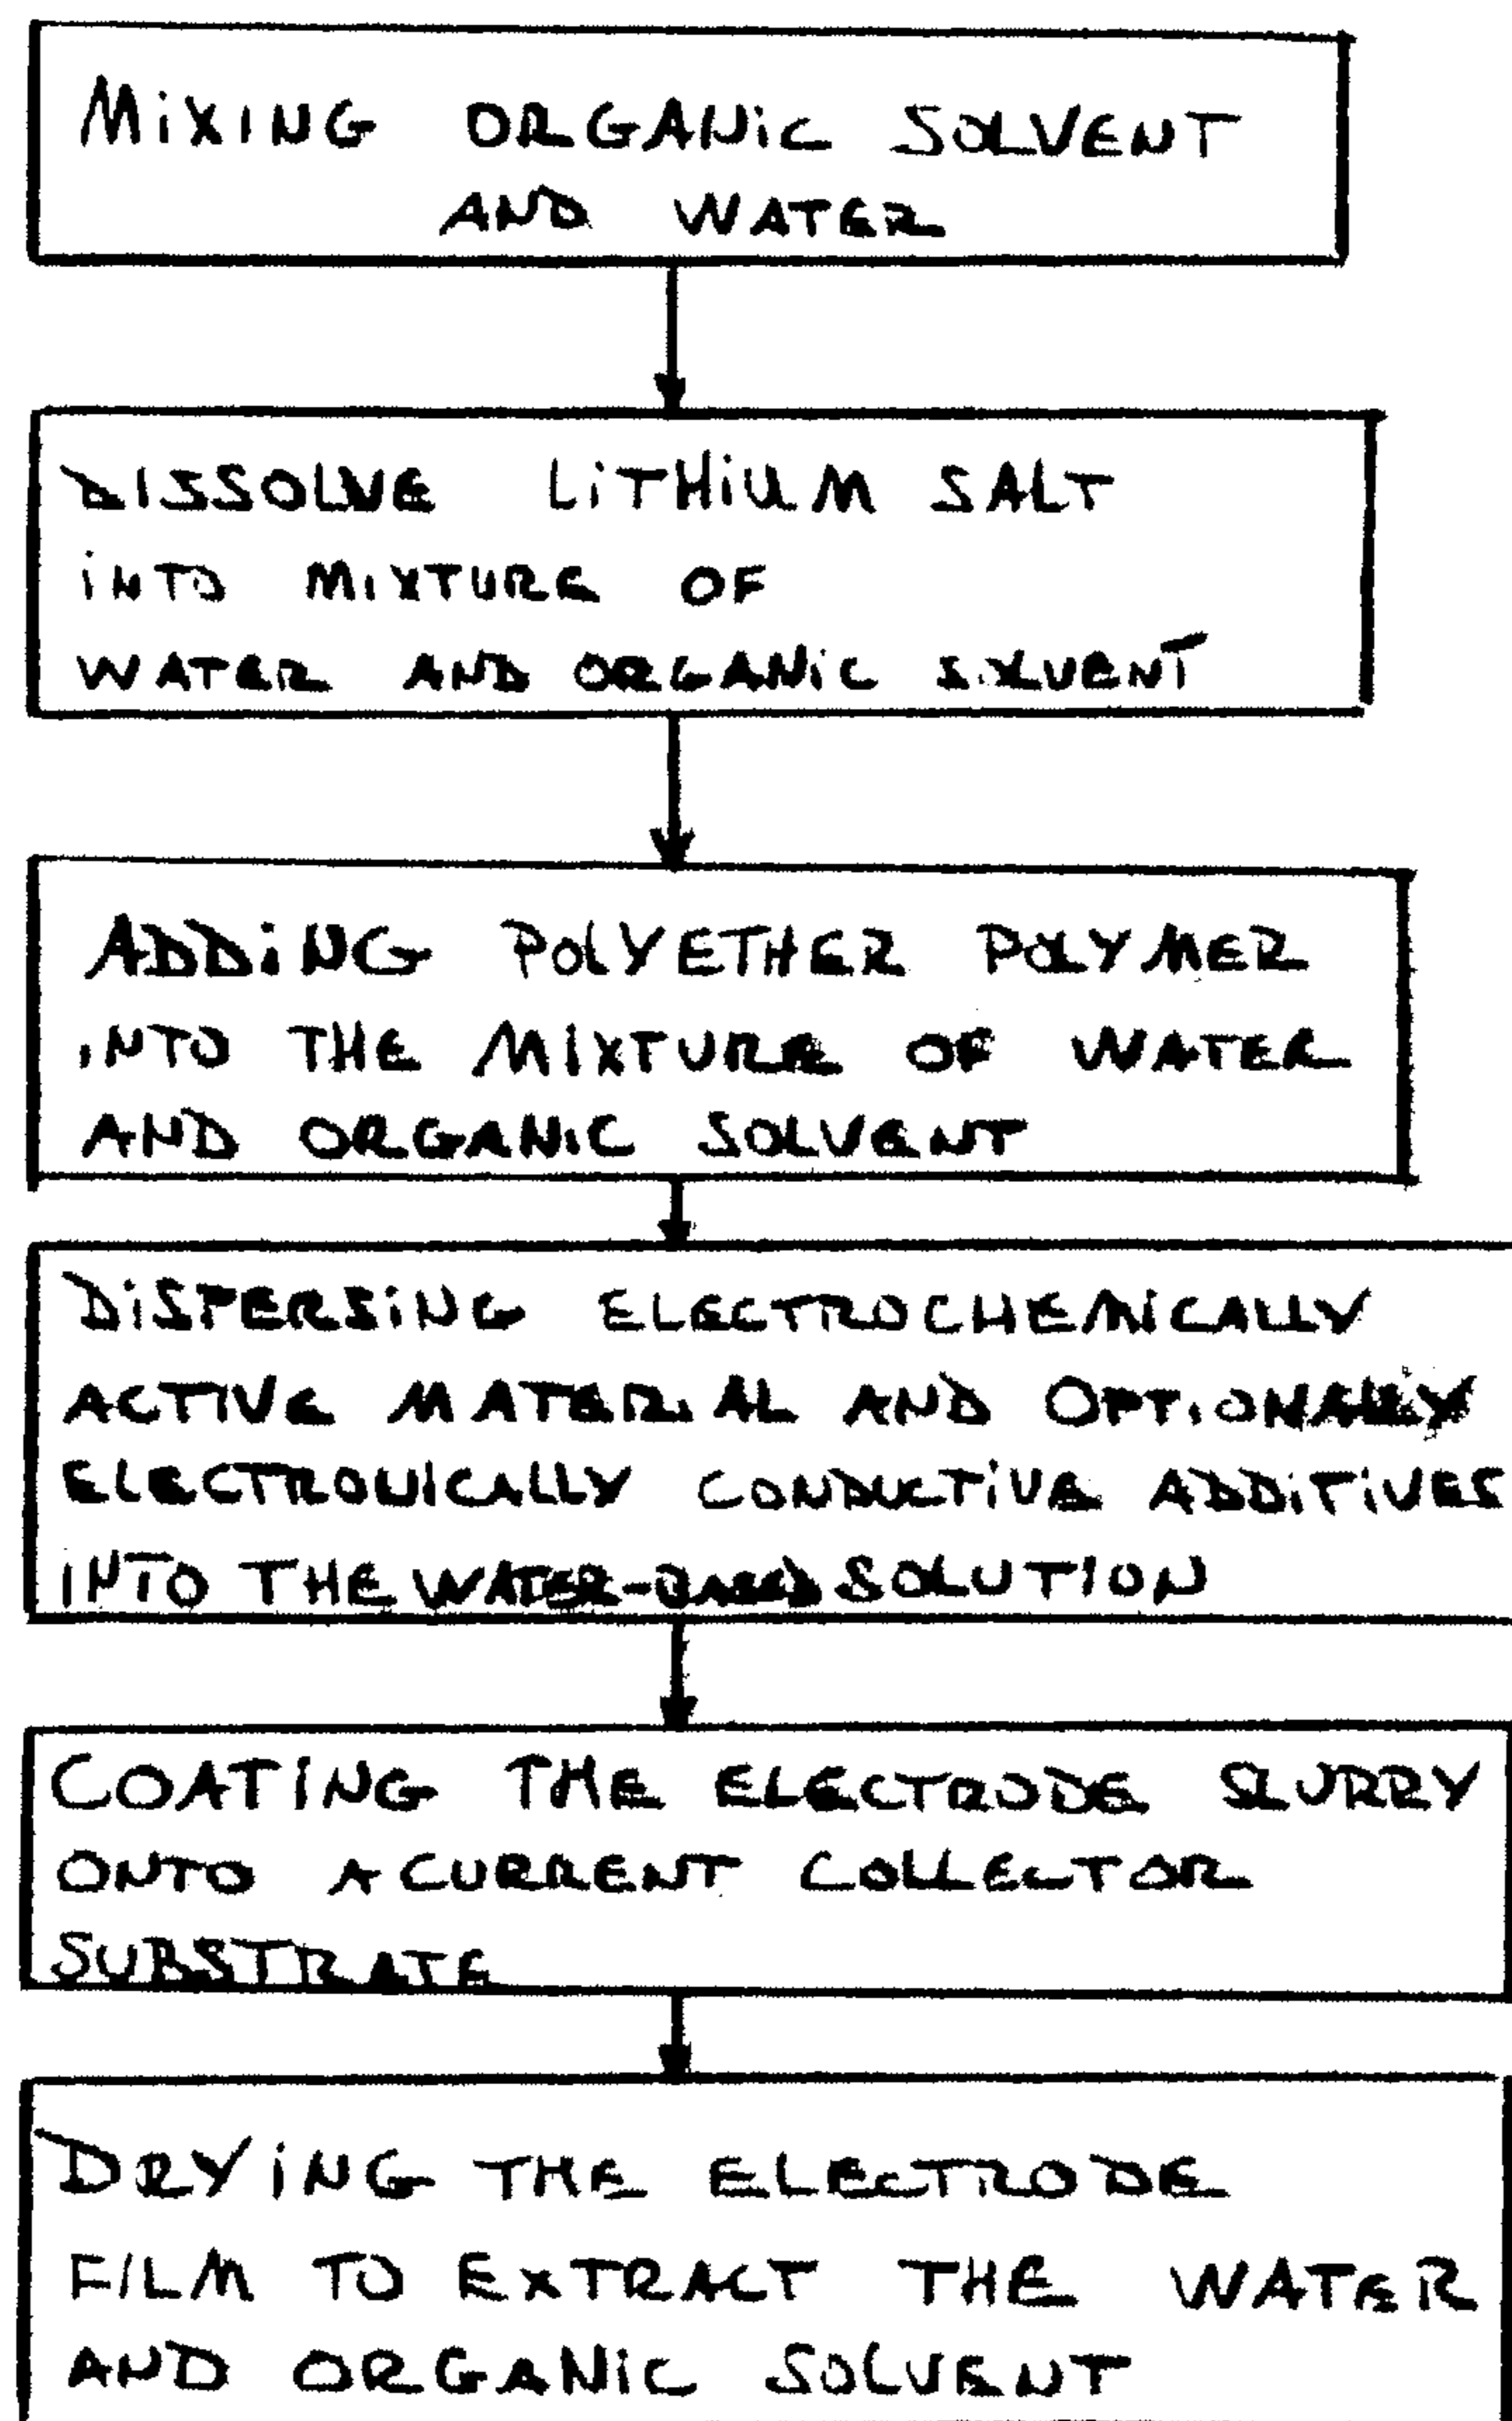 MIXING ORGANIC SOLVENT
AND WATER
DISSOLVE LITHIUM SALT
INTO MIXTURE OF
WATER AND ORGANIC SOLVENT
ADDING POLYETHER POLYMER
INTO THE MIXTURE OF WATER
AND ORGANIC SOLVENT
DISPERSING ELECTROCHEMICALLY
ACTIVE MATERIAL AND OPTIONALLY
ELECTRONICALLY CONDUCTIVE ADDITIVES
INTO THE WATER-BASED SOLUTION
COATING THE ELECTRODE SLURRY
ONTO A CURRENT COLLECTOR
SUBSTRATE
DRYING THE ELECTRODE
FILM TO EXTRACT THE WATER
AND ORGANIC SOLVENT